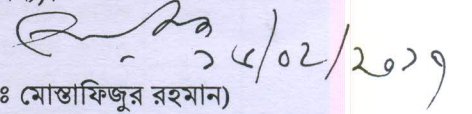 ১৫/০২/২০১৭
ঃ মোস্তাফিজুর রহমান)